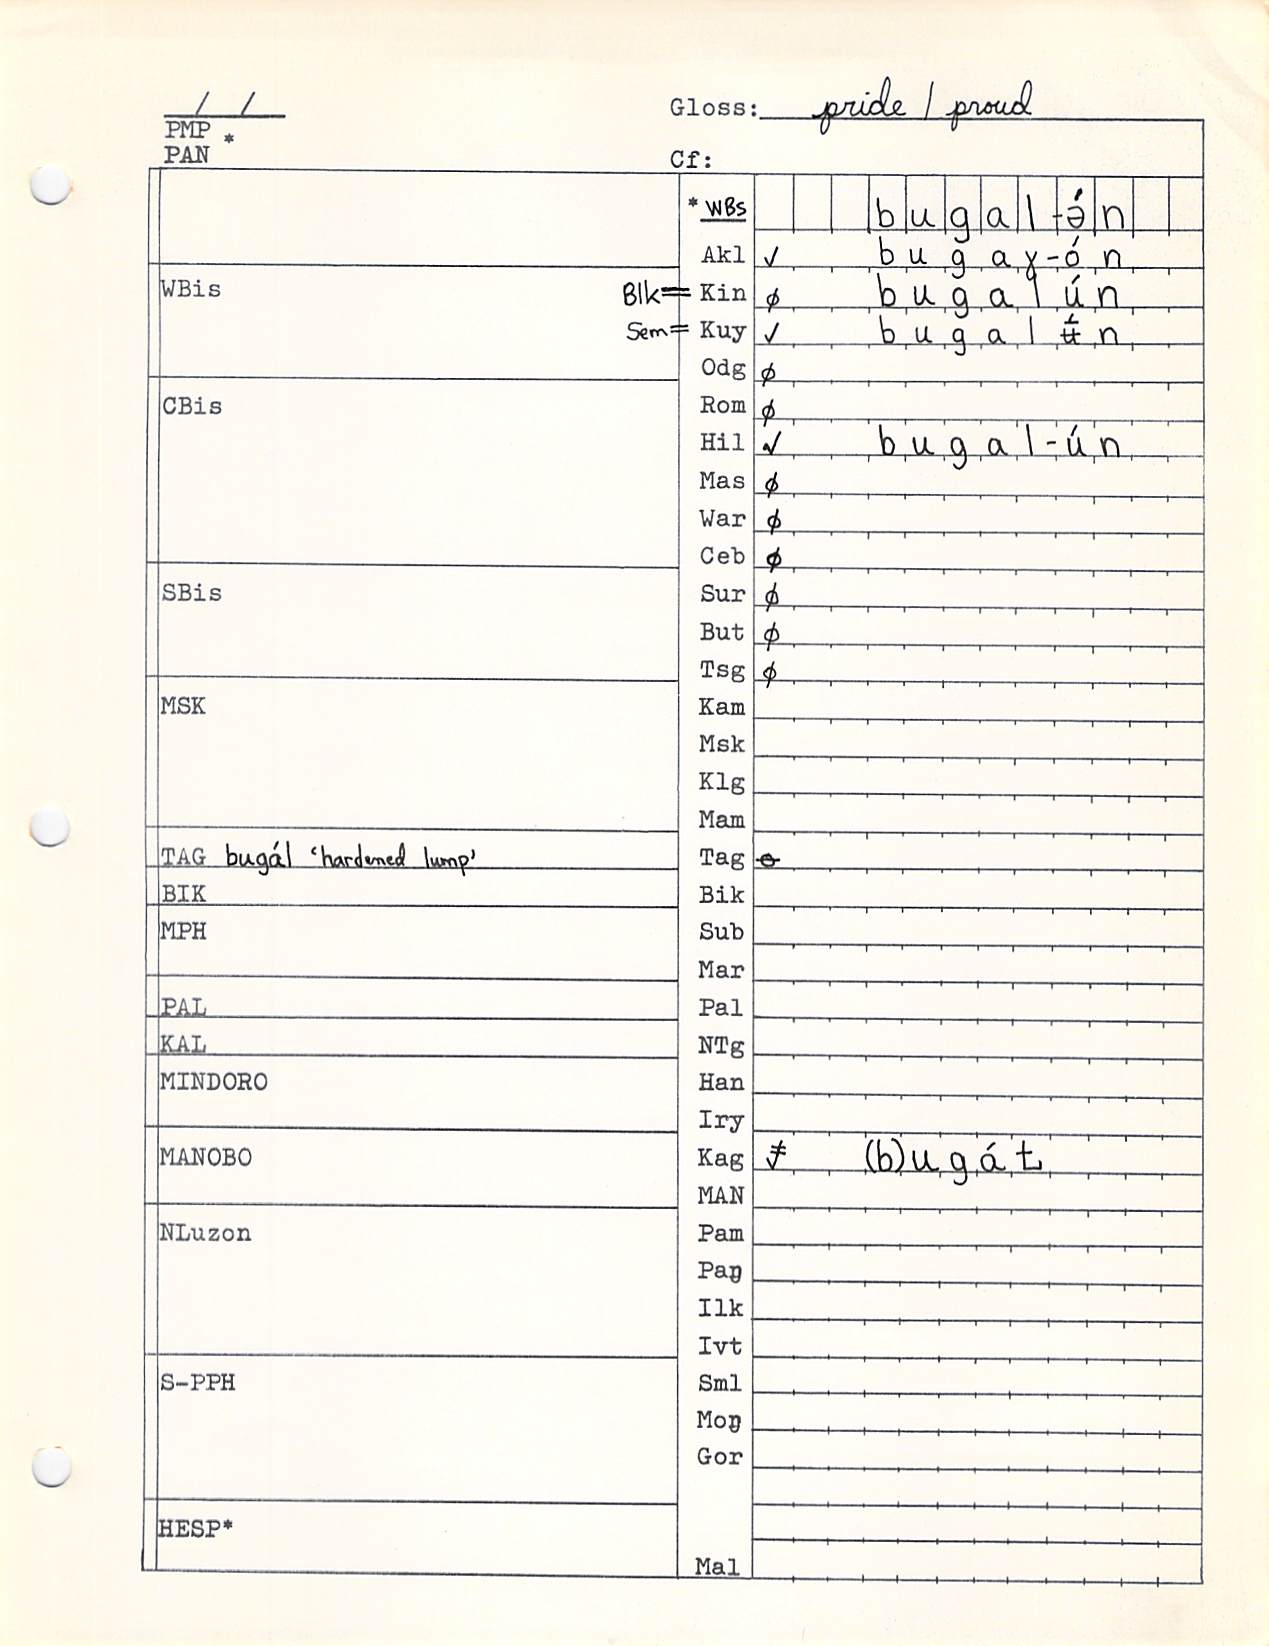 / /
Gloss: pride / proud
PMP *
PAN
Cf:
* WBs bugal-ə́n
Akl ✓ bugaɣ-ón
WBis
Blk= Kin ∅ bugalún
Sem= Kuy ✓ bugalʉ́n
Odg ∅
CBis
Rom ∅
Hil ✓ bugal-ún
Mas ∅
War ∅
Ceb ∅
SBis
Sur ∅
But ∅
Tsg ∅
MSK
Kam
Msk
Klg
Mam
TAG bugál 'hardened lump'
Tag
BIK
Bik
MPH
Sub
Mar
PAL
Pal
KAL
NTg
MINDORO
Han
Iry
MANOBO
Kag (b)ugát
MAN
NLuzon
Pam
Paŋ
Ilk
Ivt
S-PPH
Sml
Moŋ
Gor
HESP*
Mal